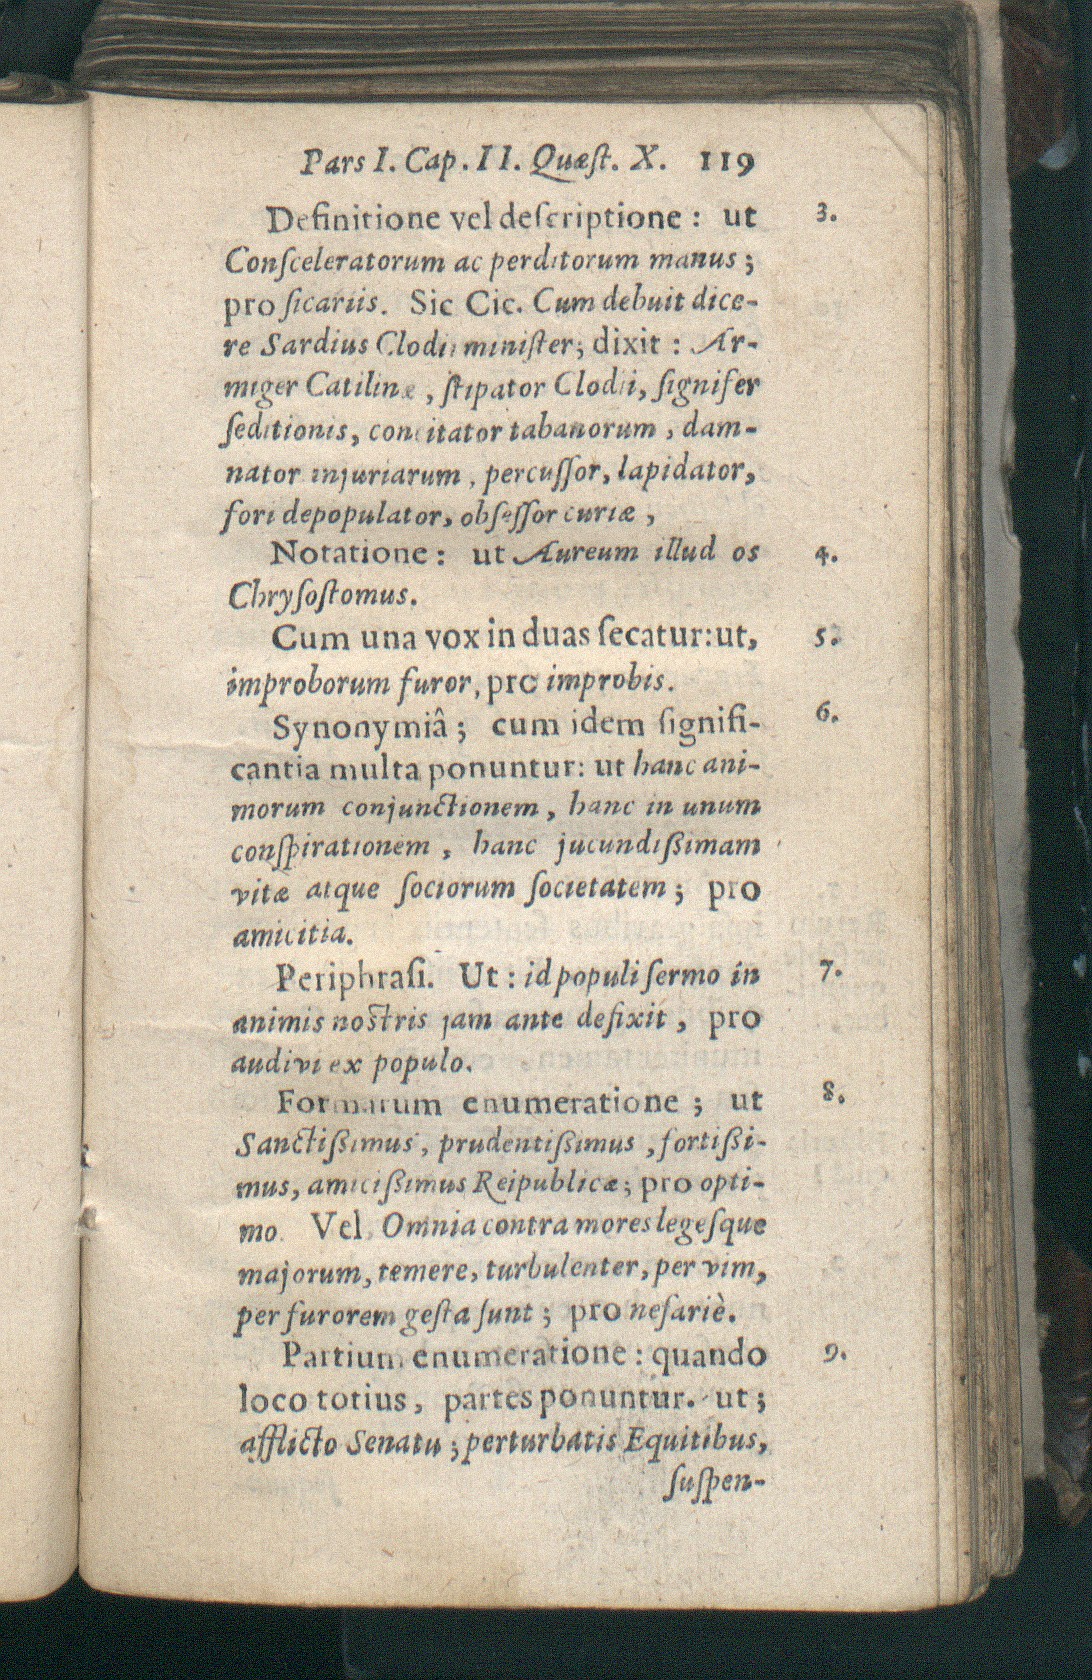 Pars I. Cap. II. Quæſt. X. 119
Definitione vel deſcriptione : ut 3.
Conſceleratorum ac perditorum manus ;
pro ſicariis. Sic Cic. Cum debuit dice-
re Sardius Clodii miniſter; dixit : Ar-
miger Catilinæ , ſtipator Clodii, ſignifer
ſeditionis, concitator tabanorum , dam-
nator injuriarum , percuſſor, lapidator,
fori depopulator, obſeſſor curiæ ,
Notatione : ut Aureum illud os 4.
Chryſoſtomus.
Cum una vox in duas ſecatur:ut, 5.
improborum furor, pro improbis.
Synonymiâ ; cum idem ſignifi- 6.
cantia multa ponuntur: ut hanc ani-
morum conjunctionem , hanc in unum
conſpirationem , hanc jucundiſsimam
vitæ atque ſociorum ſocietatem ; pro
amicitia.
Periphraſi. Ut : id populi ſermo in 7.
animis noſtris jam ante defixit , pro
audivi ex populo.
Formarum enumeratione ; ut 8.
Sanctiſsimus , prudentiſsimus , fortiſsi-
mus, amiciſsimus Reipublicæ ; pro opti-
mo. Vel, Omnia contra mores legeſque
majorum, temere, turbulenter, per vim,
per furorem geſta ſunt ; pro nefariè.
Partium enumeratione : quando 9.
loco totius , partes ponuntur. ut ;
afflicto Senatu ; perturbatis Equitibus,
ſuſpen-